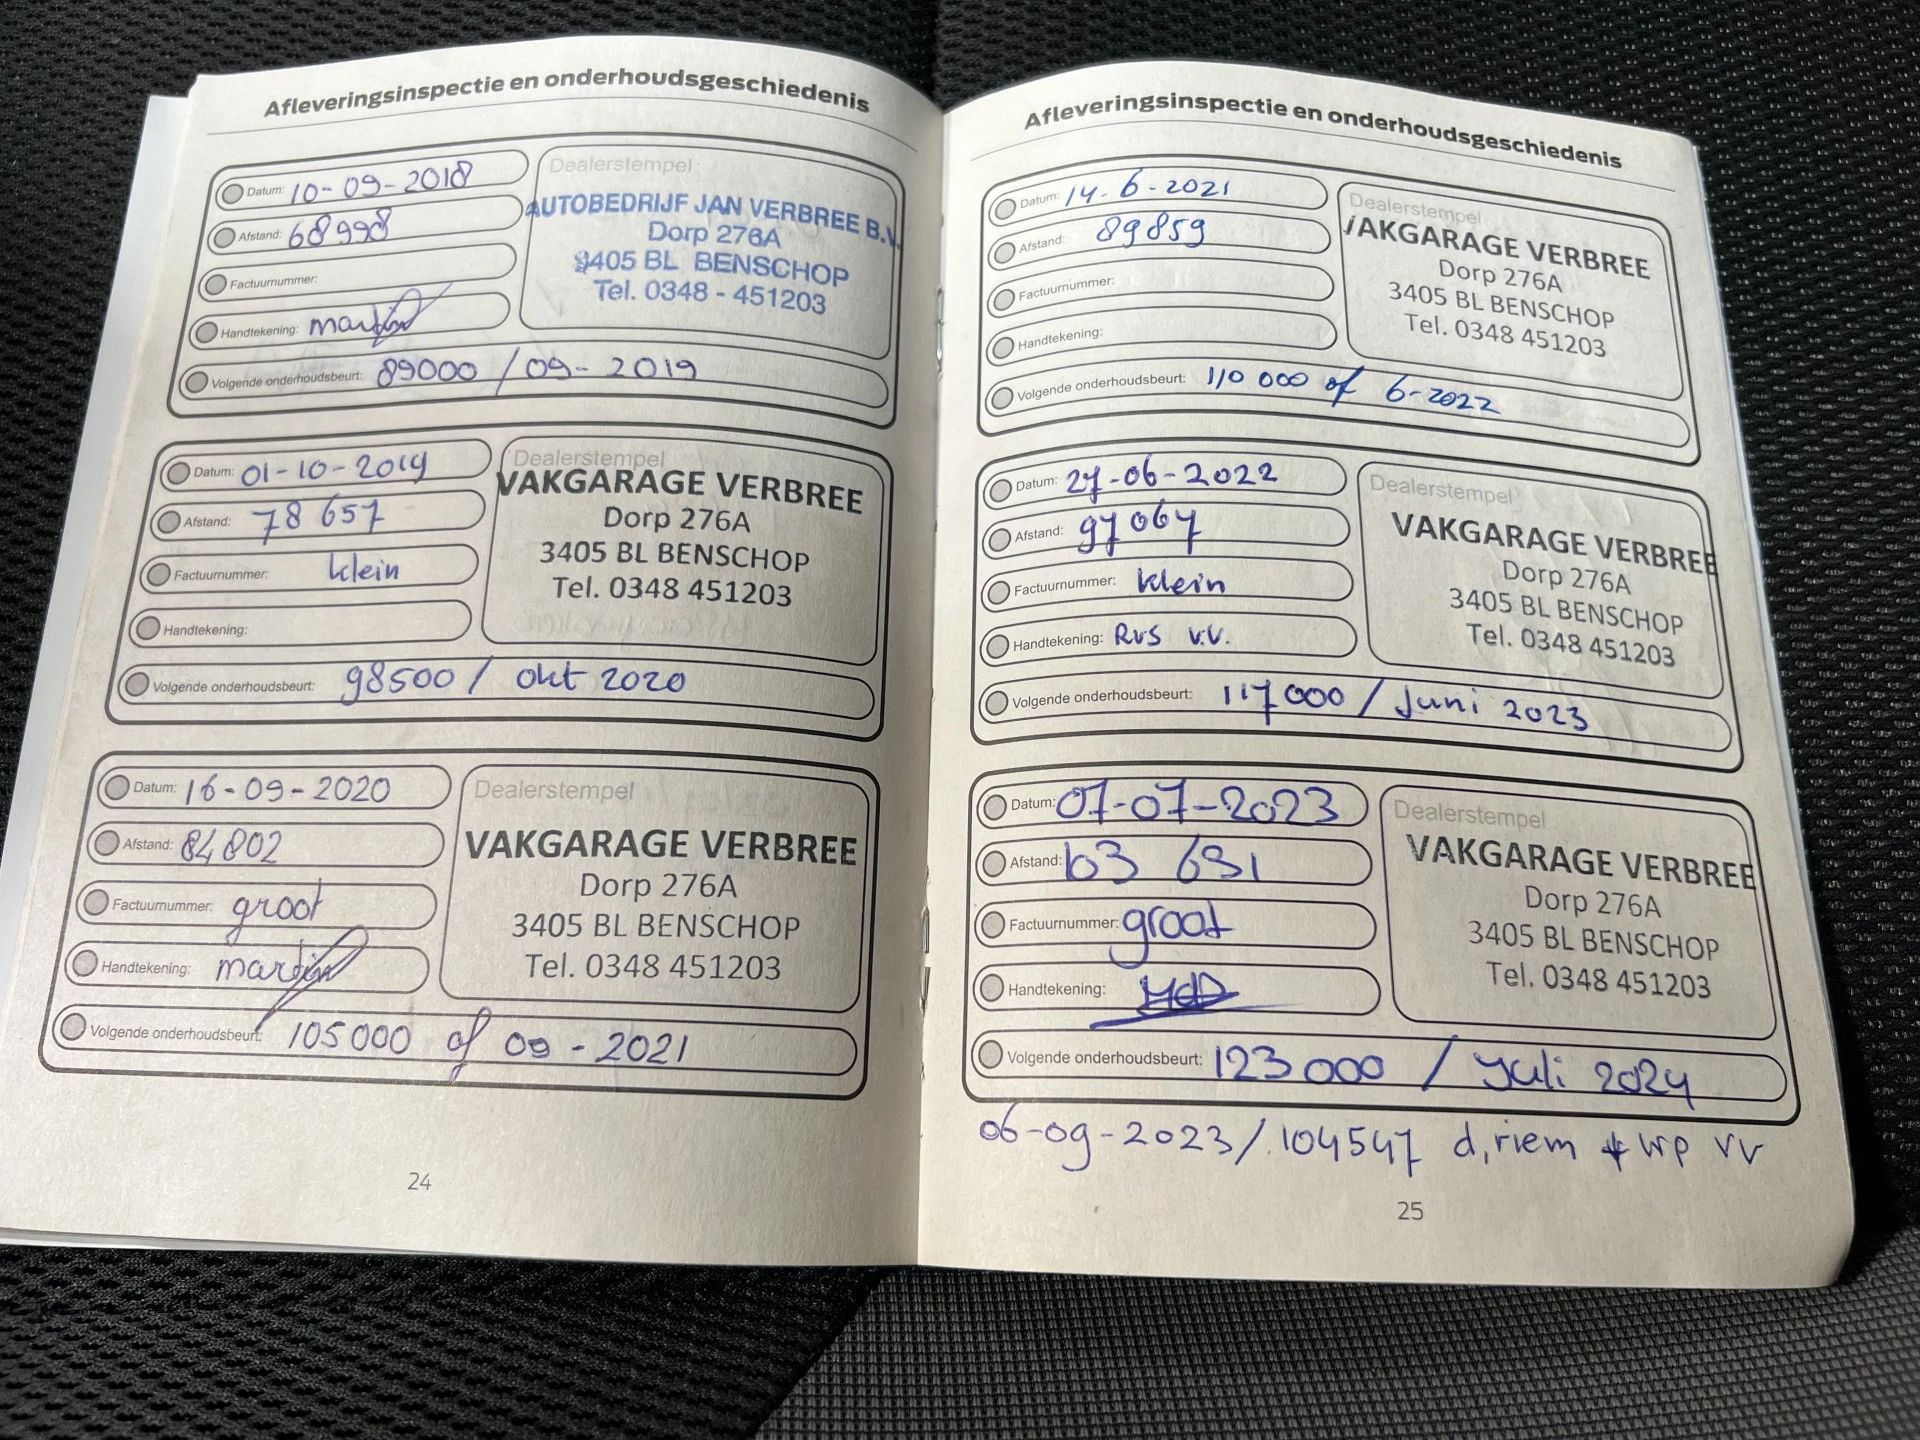 Afleveringsinspectie en onderhoudsgeschiedenis
Datum: 10-09-2018
Afstand: 68998
Factuurnummer:
Handtekening: martin
Volgende onderhoudsbeurt: 89000 / 09-2019
Dealerstempel
AUTOBEDRIJF JAN VERBREE B.V.
Dorp 276A
3405 BL BENSCHOP
Tel. 0348 - 451203
Datum: 01-10-2019
Afstand: 78 657
Factuurnummer: klein
Handtekening:
Volgende onderhoudsbeurt: 98500 / okt 2020
Dealerstempel
VAKGARAGE VERBREE
Dorp 276A
3405 BL BENSCHOP
Tel. 0348 451203
Datum: 16-09-2020
Afstand: 84802
Factuurnummer: groot
Handtekening: martin
Volgende onderhoudsbeurt: 105000 of 09-2021
Dealerstempel
VAKGARAGE VERBREE
Dorp 276A
3405 BL BENSCHOP
Tel. 0348 451203
24
Afleveringsinspectie en onderhoudsgeschiedenis
Datum: 14-6-2021
Afstand: 89859
Factuurnummer:
Handtekening:
Volgende onderhoudsbeurt: 110 000 of 6-2022
Dealerstempel
VAKGARAGE VERBREE
Dorp 276A
3405 BL BENSCHOP
Tel. 0348 451203
Datum: 27-06-2022
Afstand: 97067
Factuurnummer: klein
Handtekening: RVS V.V.
Volgende onderhoudsbeurt: 117000 / Juni 2023
Dealerstempel
VAKGARAGE VERBREE
Dorp 276A
3405 BL BENSCHOP
Tel. 0348 451203
Datum: 07-07-2023
Afstand: 103 691
Factuurnummer: groot
Handtekening:
Volgende onderhoudsbeurt: 123000 / Juli 2024
Dealerstempel
VAKGARAGE VERBREE
Dorp 276A
3405 BL BENSCHOP
Tel. 0348 451203
06-09-2023/ 104547 d,riem + wp vv
25